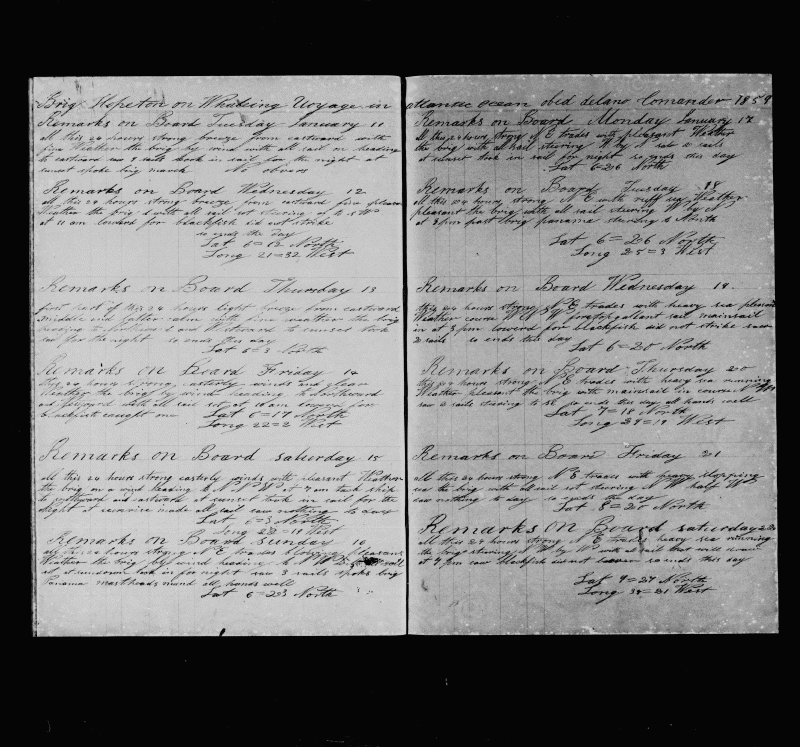 Brig Hopeton on Whaleing Voyage in
Remarks on Board Tuesday January 11
all this 24 hours strong breeze from eastward with
fine Weather the brig by wind with all sail on heading
to eastward saw 4 sails took in sail for the night at
sunset spoke brig march No observs
Remarks on Board Wednesday 12
all this 24 hours strong breeze from eastward fine pleasant
Weather the brig with all sail out steering
at 11 am lowered for blackfish did not strike
so ends the day
Lat 6=12 North
Long 21=32 West
Remarks on Board Thursday 13
first part of this 24 hours light breeze from eastward
middle and latter calm with fine weather the brig
heading to and Westward to sunset took
sail for the night so ends this day
Lat 6=3 North
Remarks on Board Friday 14
this 24 hours strong easterly winds and clear
Weather the brig by wind heading to Northward
with all sail set at 10 am lowered for
blackfish caught one Lat 6=17 North
Long 22=2 West
Remarks on Board saturday 15
all this 24 hours strong easterly winds with pleasant Weather
the brig on a wind heading N N W at 7 am tack ship
to at sunset took in sail for the
Night at made all sail saw nothing to day
Lat 6=3 North
Long 22=11 West
Remarks on Board Sunday 16
all this 24 hours strong N E trades blowing pleasant
Weather the brig by wind heading N W
at sundown took in for night saw 3 sails spoke brig
Panama mastheads mand all hands well
Lat 6=23 North
atlantic ocean obed delano Comander 1859
Remarks on Board Monday January 17
all this 24 hours strong N E trades with pleasant Weather
the brig with all sail steering W by N saw 2 sails
at sunset took in sail for night so ends this day
Lat 6=26 North
Remarks on Board Tuesday 18
all this 24 hours strong N E with sea Weather
pleasant the brig with all sail steering W by N
at 3 pm past brig panama steering to North
Lat 6=26 North
Long 25=3 West
Remarks on Board Wednesday 19
this 24 hours strong N E trades with heavy sea pleasant
Weather course W foretopgallent sail mainsail
in at 3 pm lowerd for blackfish did not strike saw
2 sails so ends this day
Lat 6=20 North
Remarks on Board Thursday 20
this 24 hours strong N E trades with heavy sea running
Weather pleasant the brig with mainsail in course
saw 2 sails steering to SE so ends this day all hands well
Lat 7=18 North
Long 29=19 West
Remarks on Board Friday 21
all this 24 hours strong N E trades with heavy
sea the brig with all sail out steering N W half W
saw nothing to day so ends the day
Lat 8=20 North
Remarks on Board saturday 22
all this 24 hours strong N E trades heavy sea running
the brig steering N W by W with all sail that will draw
at 4 pm saw blackfish did not lower so ends this day
Lat 9=24 North
Long 34=21 West